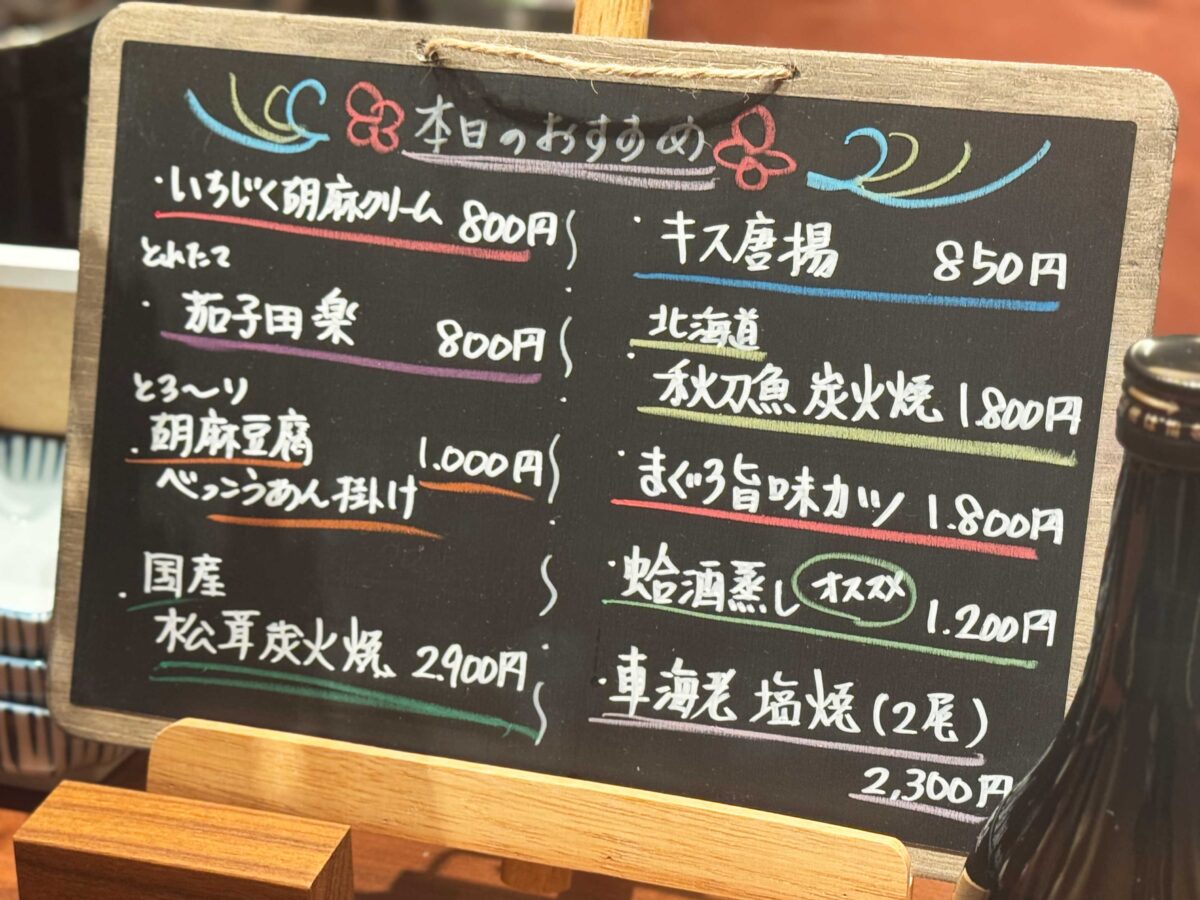 本日のおすすめ
・いちじく胡麻クリーム 800円
とれたて
・茄子田楽 800円
とろ〜り
・胡麻豆腐 1.000円
べっこうあん掛け
・国産
松茸炭火焼 2.900円
・キス唐揚 850円
北海道
・秋刀魚炭火焼 1.800円
・まぐろ旨味カツ 1.800円
・蛤酒蒸し オススメ 1.200円
・車海老 塩焼(2尾)
2,300円